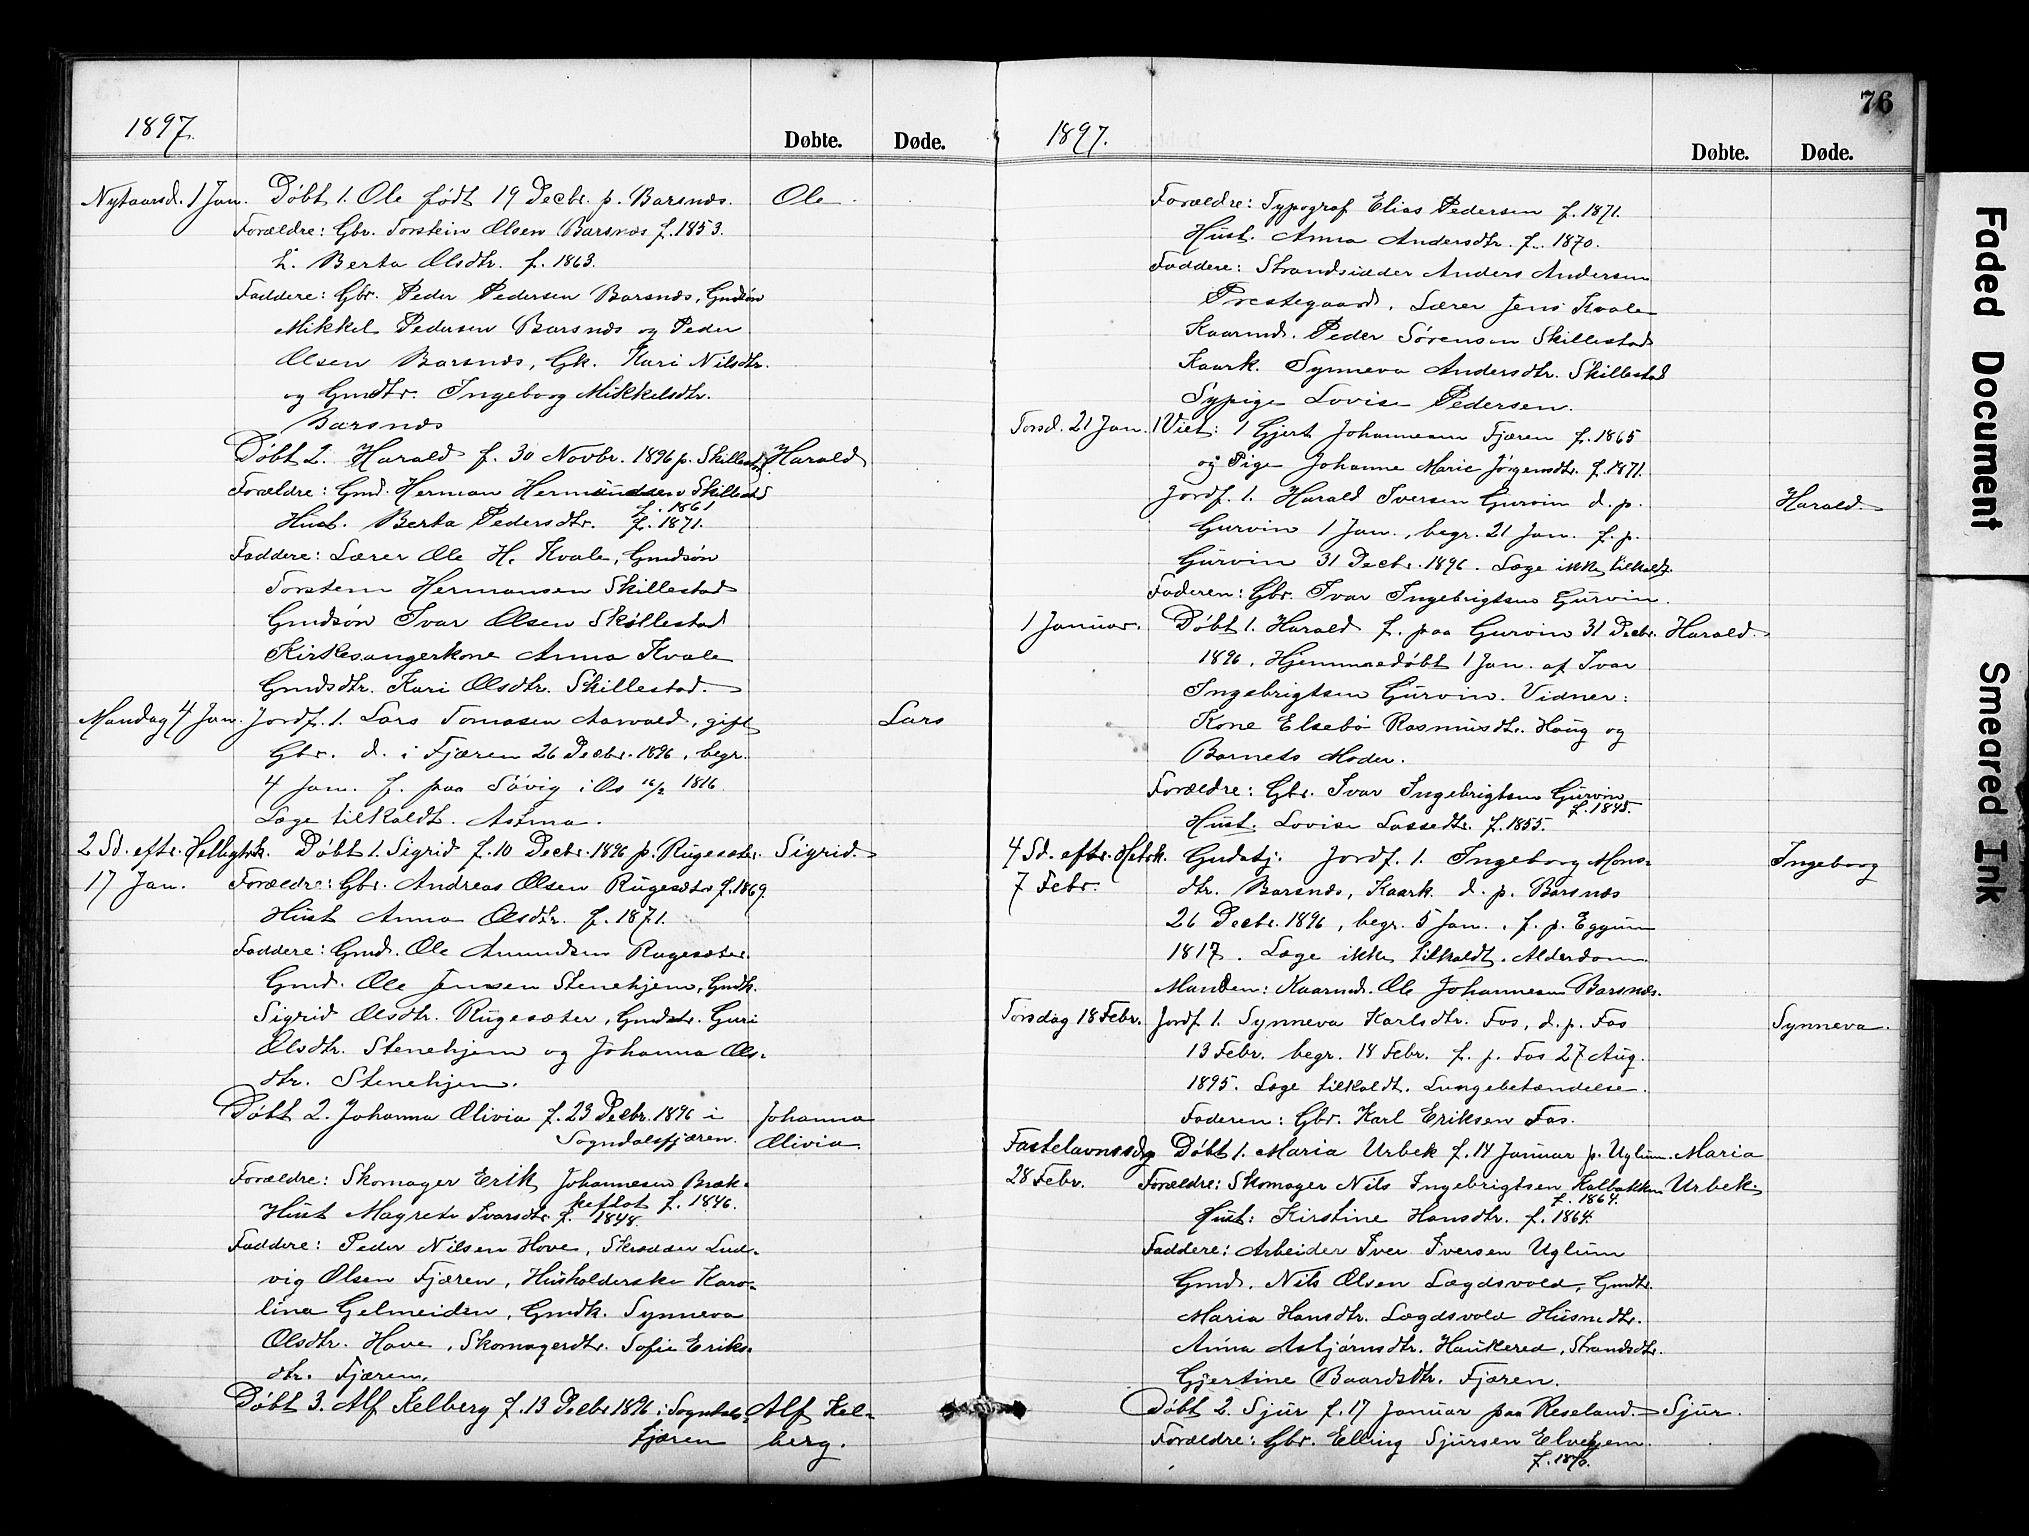 1897.
Døbte.
Døde.
Nytaarsd. 1 Jan. Døbt 1. Ole født 19 Decbr. p. Barsnes. Ole
Forældre: Gbr. Torstein Olsen Barsnes f. 1853.
h. Berta Olsdtr. f. 1863.
Faddere: Gbr. Peder Pedersen Barsnes, Gmdsøn
Mikkel Pedersen Barsnes og Peder
Olsen Barsnes, Gk. Kari Nilsdtr.
og Gmdtr. Ingeborg Mikkelsdtr.
Barsnes
Døbt 2. Harald f. 30 Novbr. 1896 p. Skillestad Harald
Forældre: Gmd. Herman Hermundsen Skillestad
f. 1861
Hust. Berta Pedersdtr. f. 1871.
Faddere: Lærer Ole H. Kvale, Gmdsøn
Torstein Hermansen Skillestad
Gmdsøn Ivar Olsen Skillestad
Kirkesangerkone Anna Kvale
Gmdsdtr. Kari Olsdtr. Skillestad.
Mandag 4 Jan. Jordf. 1. Lars Tomasen Aarvold, gift Lars
Gbr. d. i Fjæren 26 Decbr. 1896, begr.
4 Jan. f. paa Søvig i Os 16/2 1816
Læge tilkaldt. Astma.
2 Sd. eftr. Helligtrk. Døbt 1. Sigrid f. 10 Decbr. 1896 p. Rugesæter. Sigrid.
17 Jan. Forældre: Gbr. Andreas Olsen Rugesæter f. 1869.
Hust Anna Olsdtr. f. 1871.
Faddere: Gmd. Ole Amundsen Rugesæter.
Gmd. Ole Jensen Stenehjem, Gmdk.
Sigrid Olsdtr. Rugesæter, Gmdstr. Guri
Olsdtr. Stenehjem og Johanna Ols-
dtr. Stenehjem.
Døbt 2. Johanna Olivia f. 23 Decbr. 1896 i Johanna
Sogndalsfjæren. Olivia.
Forældre: Skomager Erik Johannesen Bræk-
keflot f. 1846.
Hust Magrete Ivarsdtr. f. 1848.
Faddere: Peder Nilsen Hove, Skrædder Lud-
vig Olsen Fjæren, Husholderske Karo-
lina Gelmeiden, Gmdk. Synneva
Olsdtr. Hove, Skomagerdtr. Sofie Eriks-
dtr. Fjæren.
Døbt 3. Alf Kelberg f. 13 Decbr 1896 i Sogndals- Alf Kel-
fjæren berg.
76
1897.
Døbte.
Døde.
Forældre: Typograf Elias Pedersen f. 1871.
Hust. Anna Andersdtr. f. 1870.
Faddere: Strandsidder Anders Andersen
Prestegaard, Lærer Jens Kvale
Kaarmd. Peder Sørensen Skillestad
Kaark. Synneva Andersdtr. Skillestad
Sypige Lovise Pedersen.
Torsd. 21 Jan. Viet: 1 Gjert Johannesen Fjæren f. 1865
og Pige Johanne Marie Jørgensdtr. f. 1871.
Jordf. 1. Harald Iversen Gurvin d. p. Harald.
Gurvin 1 Jan., begr. 21 Jan. f. p.
Gurvin 31 Decbr. 1896. Læge ikke tilkaldt.
Faderen: Gbr. Ivar Ingebrigtsen Gurvin.
1 Januar. Døbt 1. Harald f. paa Gurvin 31 Decbr. Harald.
1896. Hjemmedøbt 1 Jan. af Ivar
Ingebrigtsen Gurvin. Vidner:
Kone Elsebø Rasmusdtr. Haug og
Barnets Moder.
Forældre: Gbr. Ivar Ingebrigtsen Gurvin
f. 1845.
Hust. Lovise Lassedtr. f. 1855.
4 Sd. eftr. Hetrk. Gudstj. Jordf. 1. Ingeborg Mons- Ingeborg
7 Febr. dtr. Barsnes, Kaark. d. p. Barsnes
26 Decbr. 1896, begr. 5 Jan., f. p. Eggum
1817. Læge ikke tilkaldt. Alderdom.
Manden: Kaarmd. Ole Johannesen Barsnes.
Torsdag 18 Febr. Jordf. 1. Synneva Karlsdtr. Fos, d. p. Fos Synneva.
13 Febr. begr. 18 Febr. f. p. Fos 27 Aug.
1895. Læge tilkaldt. Lungebetændelse.
Faderen: Gbr. Karl Eriksen Fos.
Fastelavnssdg Døbt 1. Maria Urbek f. 14 Januar p. Uglum. Maria
28 Febr. Forældre: Skomager Nils Ingebrigtsen Kalbakken Urbek.
f. 1864.
Hust: Kirstine Hansdtr. f. 1864.
Faddere: Arbeider Iver Iversen Uglum
Gmd. Nils Olsen Lægdsvold, Gmdtr.
Maria Hansdtr. Lægdsvold Husmdtr.
Anna Asbjørnsdtr. Haukered, Strandsdtr.
Gjertine Baardsdtr. Fjæren.
Døbt 2. Sjur f. 17 Januar paa Reseland. Sjur.
Forældre: Gbr. Elling Sjursen Elvehjem.
Faded Document
Smeared Ink